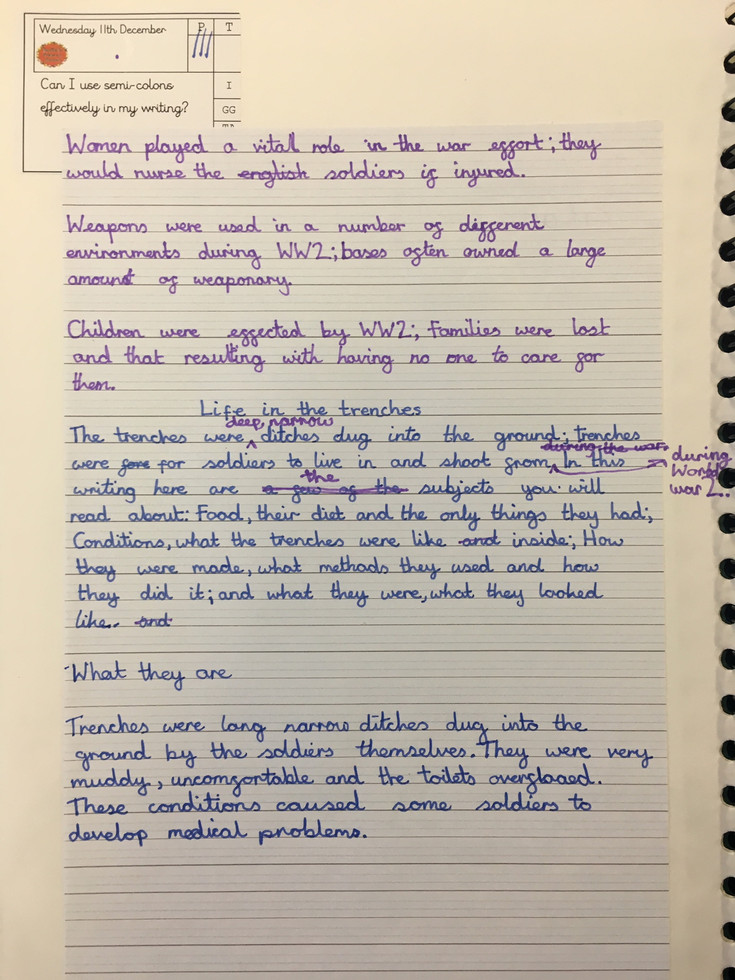 Wednesday 11th December
P T
Can I use semi-colons I
effectively in my writing? GG
Women played a vital role in the war effort; they
would nurse the english soldiers if injured.
Weapons were used in a number of different
environments during WW2; bases often owned a large
amount of weaponary.
Children were effected by WW2; families were lost
and that resulting with having no one to care for
them.
Life in the trenches
deep, narrow
The trenches were ditches dug into the ground; trenches
during the war.
were for soldiers to live in and shoot from. In this
during
World
war 2.
the
writing here are a few of the subjects you will
read about: Food, their diet and the only things they had;
Conditions, what the trenches were like and inside; How
they were made, what methods they used and how
they did it; and what they were, what they looked
like. and
What they are
Trenches were long narrow ditches dug into the
ground by the soldiers themselves. They were very
muddy, uncomfortable and the toilets overflowed.
These conditions caused some soldiers to
develop medical problems.